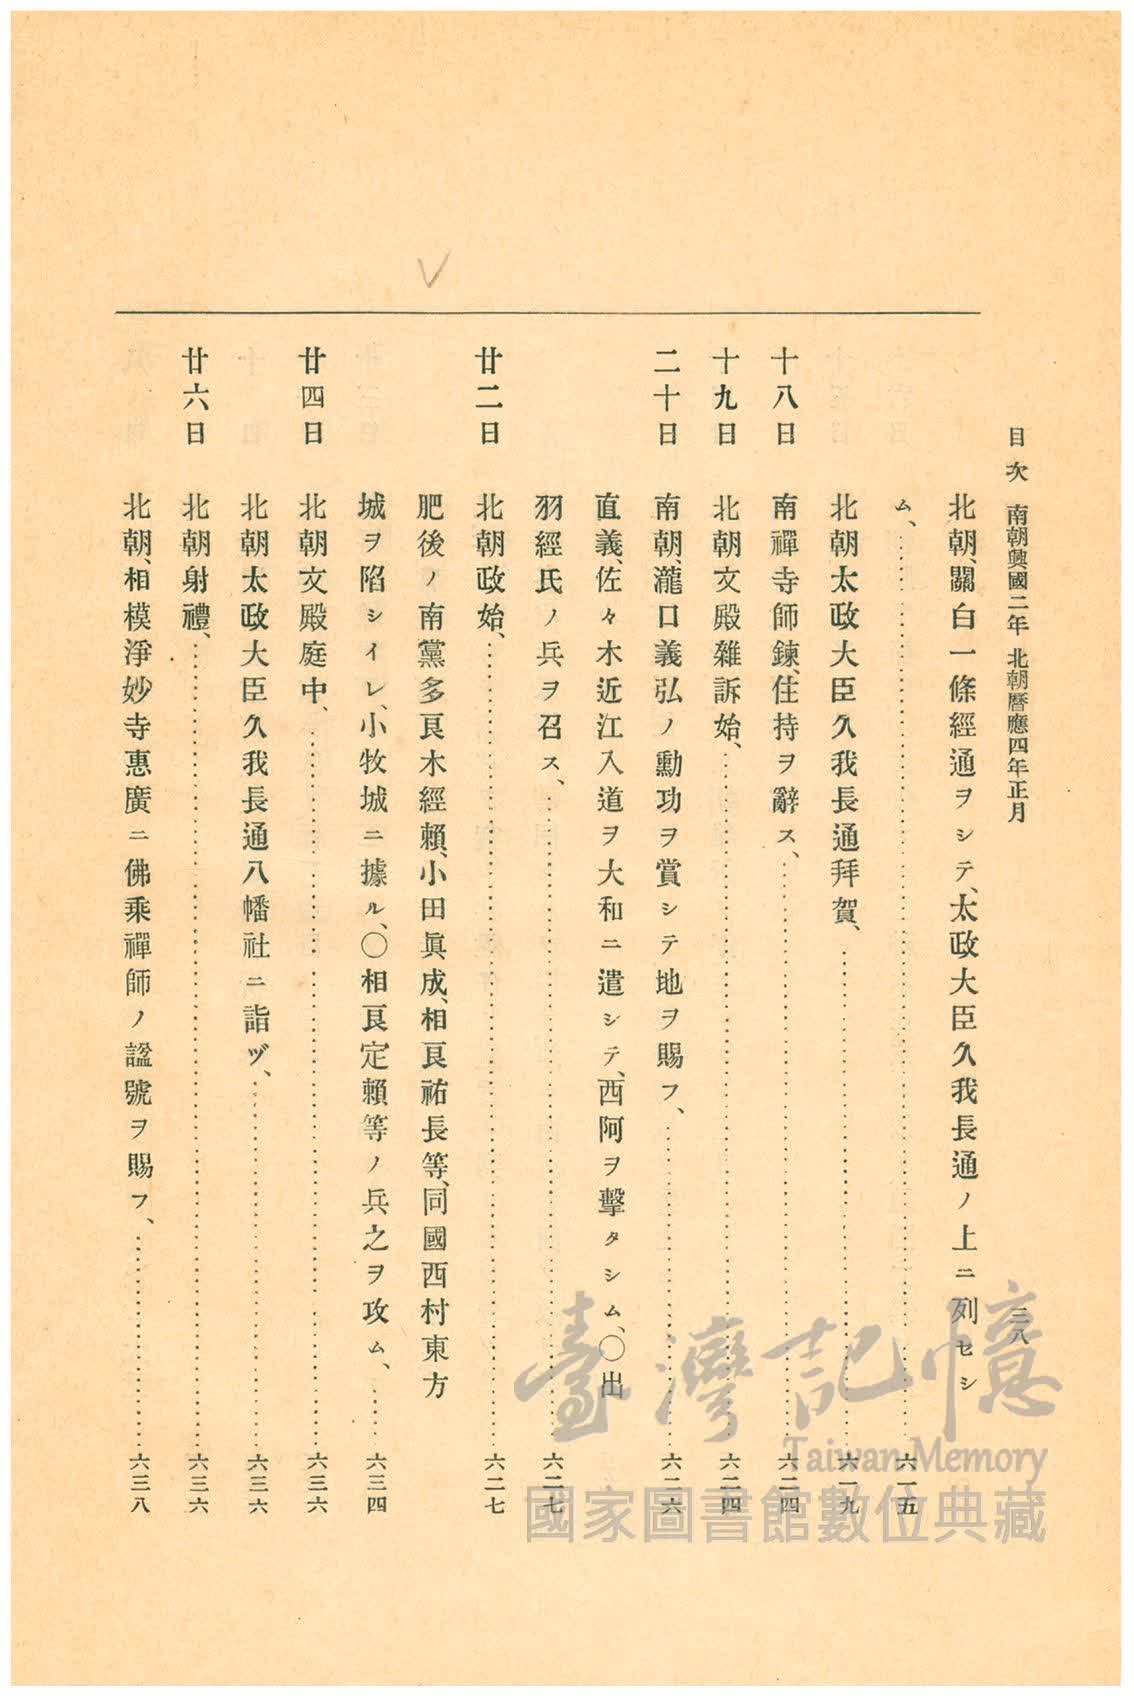 目次　南朝興國二年　北朝曆應四年正月　三八
北朝、關白一條經通ヲシテ、太政大臣久我長通ノ上ニ列セシ
ム、……六一五
北朝太政大臣久我長通拜賀、……六一九
十八日　南禪寺師鍊、住持ヲ辭ス、……六二四
十九日　北朝文殿雜訴始、……六二四
二十日　南朝、瀧口義弘ノ勳功ヲ賞シテ地ヲ賜フ、……六二六
直義、佐々木近江入道ヲ大和ニ遣シテ、西阿ヲ擊タシム、〇出
羽經氏ノ兵ヲ召ス、……六二七
廿二日　北朝政始、……六二七
肥後ノ南黨多良木經賴、小田眞成、相良祐長等、同國西村東方
城ヲ陷シイレ、小牧城ニ據ル、〇相良定賴等ノ兵之ヲ攻ム、……六三四
廿四日　北朝文殿庭中、……六三六
北朝太政大臣久我長通八幡社ニ詣ヅ、……六三六
廿六日　北朝射禮、……六三六
北朝、相模淨妙寺惠廣ニ佛乘禪師ノ諡號ヲ賜フ、……六三八
臺灣記憶
Taiwan Memory
國家圖書館數位典藏